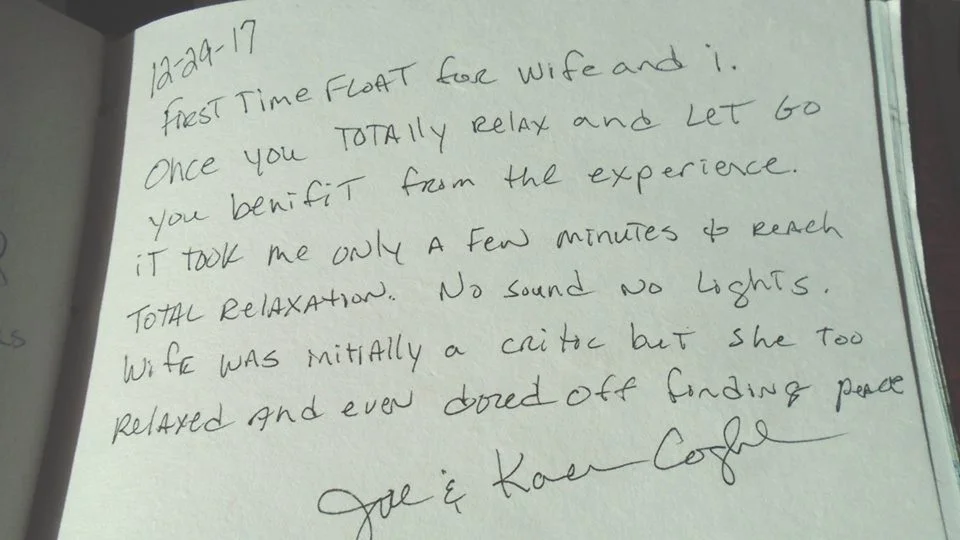 12-29-17
First Time Float for wife and i.
Once you Totally Relax and Let Go
you benifit from the experience.
iT took me only A Few minutes to Reach
Total Relaxation. No sound no Lights.
Wife was initially a critic but she too
Relaxed and even dozed off finding peace
Joe & Karen